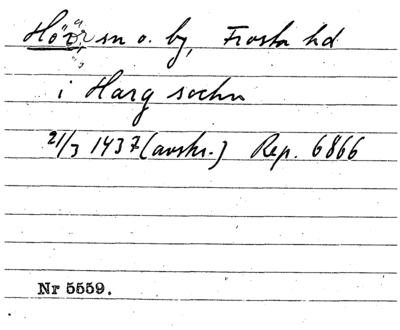 Höör sn o. by, Frosta hd
i Harg sochn
21/3 1437 (avskr.) Rep. 6866
Nr 5559.